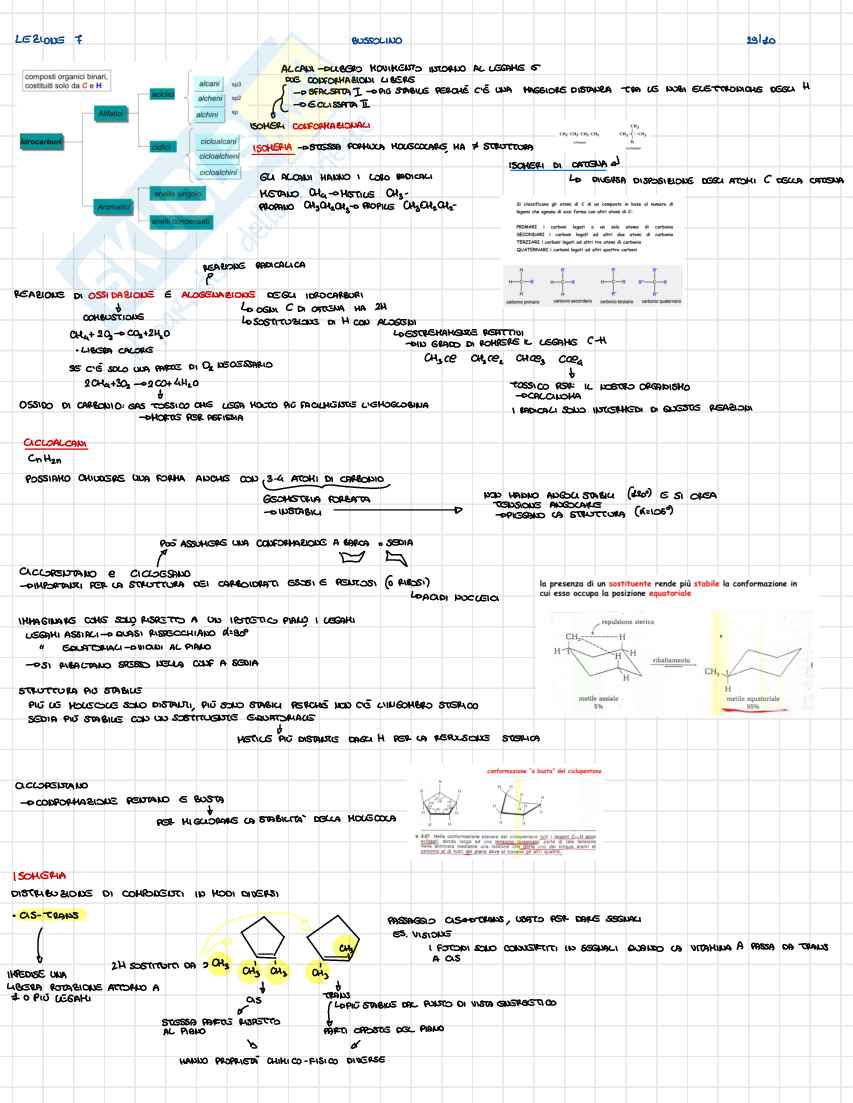 LEZIONE 7
BUSSOLINO
29/10
composti organici binari,
costituiti solo da C e H
Idrocarburi
Alifatici
Aromatici
aciclici
ciclici
anello singolo
anelli condensati
alcani sp3
alcheni sp2
alchini sp
cicloalcani
cicloalcheni
cicloalchini
ALCANI → LIBERO MOVIMENTO INTORNO AL LEGAME σ
DUE CONFORMAZIONI LIBERE
→ SFALSATA I → PIÙ STABILE PERCHÉ C'È UNA MAGGIORE DISTANZA TRA LE NUBI ELETTRONICHE DEGLI H
→ ECLISSATA II
ISOMERI CONFORMAZIONALI
ISOMERIA → STESSA FORMULA MOLECOLARE, MA ≠ STRUTTURA
CH3-CH2-CH2-CH3
ISOMERI DI CATENA
↳ DIVERSA DISPOSIZIONE DEGLI ATOMI C DELLA CATENA
GLI ALCANI HANNO I LORO RADICALI
METANO CH4 → METILE CH3-
PROPANO CH3CH2CH3 → PROPILE CH3CH2CH2-
Si classificano gli atomi di C di un composto in base al numero di
legami che ognuno di essi forma con altri atomi di C:
PRIMARI i carboni legati a un solo atomo di carbonio
SECONDARI i carboni legati ad altri due atomi di carbonio
TERZIARI i carboni legati ad altri tre atomi di carbonio
QUATERNARI i carboni legati ad altri quattro carboni
carbonio primario carbonio secondario carbonio terziario carbonio quaternario
REAZIONE RADICALICA
REAZIONE DI OSSIDAZIONE E ALOGENAZIONE DEGLI IDROCARBURI
COMBUSTIONE
CH4 + 2O2 → CO2 + 2H2O
• LIBERA CALORE
SE C'È SOLO UNA PARTE DI O2 NECESSARIO
2CH4 + 3O2 → 2CO + 4H2O
OSSIDO DI CARBONIO: GAS TOSSICO CHE LEGA MOLTO PIÙ FACILMENTE L'EMOGLOBINA
→ MORTE PER ASFISSIA
↳ OGNI C DI CATENA HA 2H
↳ SOSTITUZIONE DI H CON ALOGENI
↳ ESTREMAMENTE REATTIVI
→ IN GRADO DI ROMPERE IL LEGAME C-H
CH3Cl CH2Cl2 CHCl3 CCl4
TOSSICO PER IL NOSTRO ORGANISMO
→ CALCINOMA
I RADICALI SONO INTERMEDI DI QUESTE REAZIONI
CICLOALCANI
CnH2n
POSSIAMO CHIUDERE UNA FORMA ANCHE CON 3-4 ATOMI DI CARBONIO
GEOMETRIA FORZATA
→ INSTABILI
NON HANNO ANGOLI STABILI (120°) E SI CREA
TENSIONE ANGOLARE
→ PIEGANO LA STRUTTURA (α=105°)
PUÒ ASSUMERE UNA CONFORMAZIONE A BARCA o SEDIA
CICLOPENTANO e CICLOESANO
→ IMPORTANTI PER LA STRUTTURA DEI CARBOIDRATI ESOSI E PENTOSI (O RIBOSI)
↳ ACIDI NUCLEICI
IMMAGINARE COME SONO RISPETTO A UN IPOTETICO PIANO, I LEGAMI
LEGAMI ASSIALI → QUASI RISPECCHIANO α=90°
" EQUATORIALI → VICINI AL PIANO
→ SI RIBALTANO SPESSO NELLA CONF A SEDIA
la presenza di un sostituente rende più stabile la conformazione in
cui esso occupa la posizione equatoriale
repulsione sterica
ribaltamento
metile assiale
5%
metile equatoriale
95%
STRUTTURA PIÙ STABILE
PIÙ LE MOLECOLE SONO DISTANTI, PIÙ SONO STABILI PERCHÉ NON C'È L'INGOMBRO STERICO
SEDIA PIÙ STABILE CON UN SOSTITUENTE EQUATORIALE
METILE PIÙ DISTANTE DAGLI H PER LA REPULSIONE STERICA
CICLOPENTANO
→ CONFORMAZIONE PENTANO E BUSTA
PER MIGLIORARE LA STABILITÀ DELLA MOLECOLA
conformazione "a busta" del ciclopentano
ISOMERIA
DISTRIBUZIONE DI COMPONENTI IN MODI DIVERSI
• CIS-TRANS
IMPEDISCE UNA
LIBERA ROTAZIONE ATTORNO A
1 O PIÙ LEGAMI
2H SOSTITUITI DA 2 CH3
CH3 CH3
CH3 CH3
CIS
STESSA PARTE RISPETTO
AL PIANO
TRANS
↳ PIÙ STABILE DAL PUNTO DI VISTA ENERGETICO
PARTI OPPOSTE DEL PIANO
HANNO PROPRIETÀ CHIMICO-FISICO DIVERSE
PASSAGGIO CIS↔TRANS, USATO PER DARE SEGNALI
ES. VISIONE
I FOTONI SONO CONVERTITI IN SEGNALI QUANDO LA VITAMINA A PASSA DA TRANS
A CIS